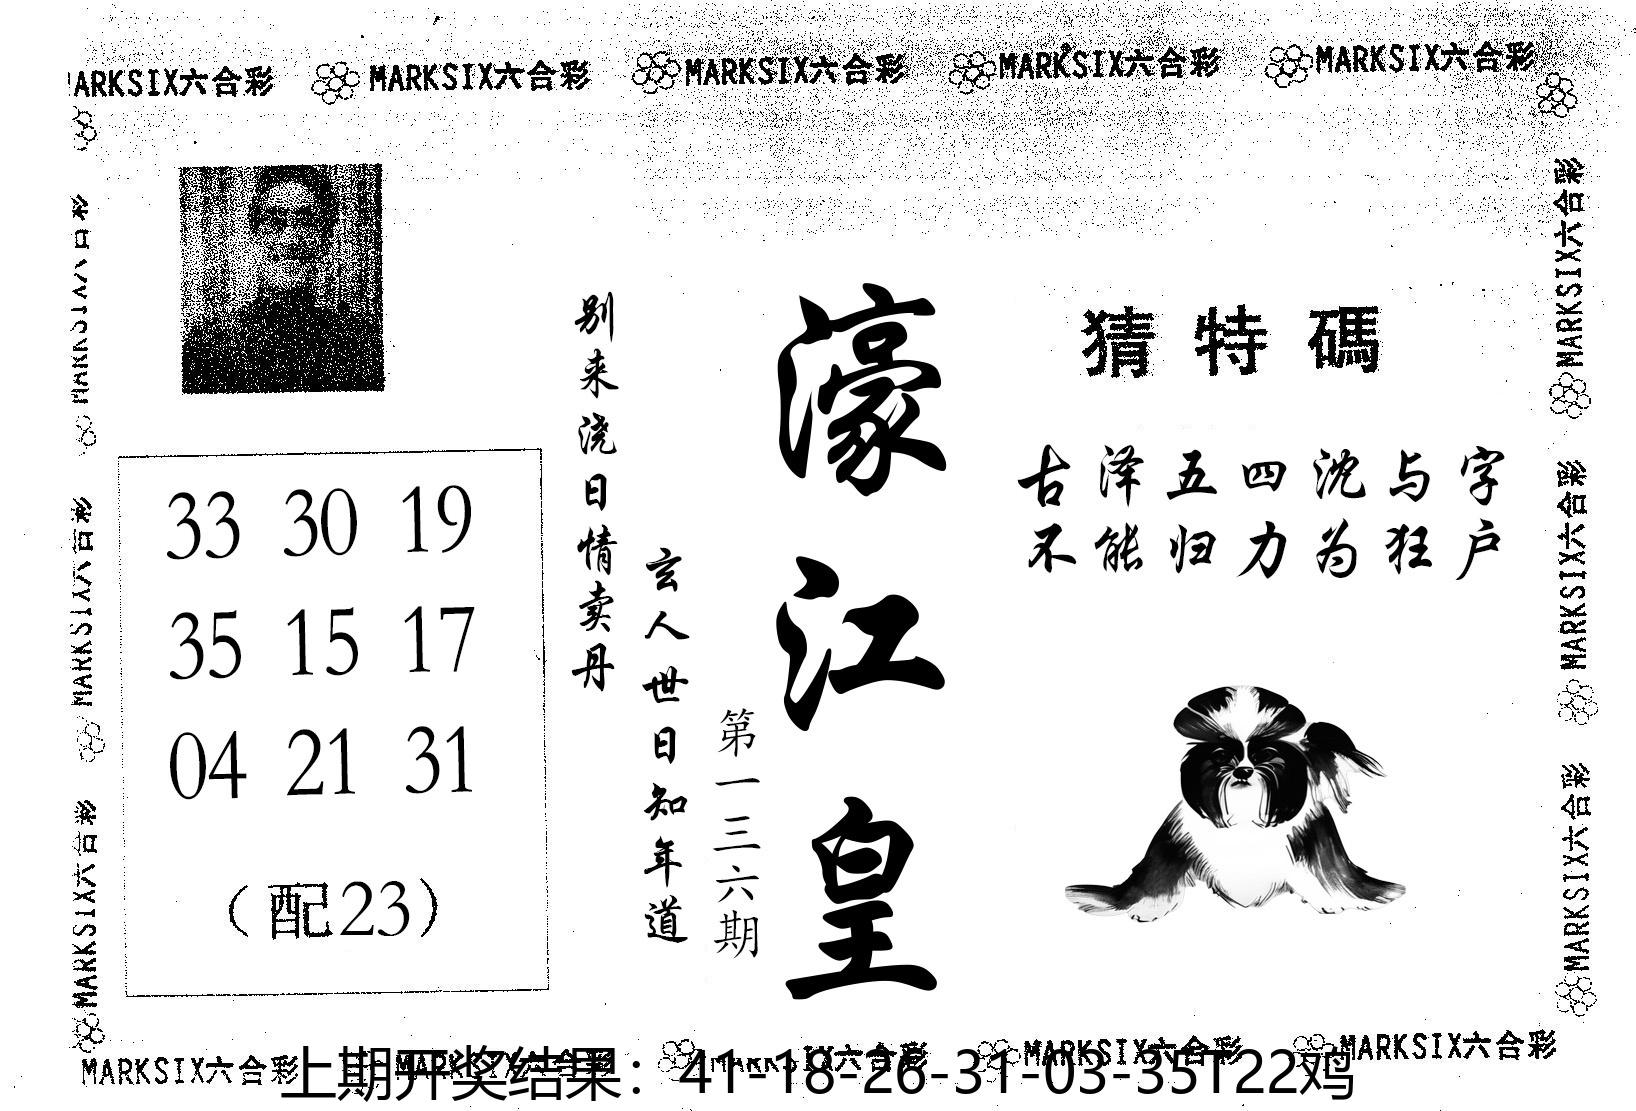 MARKSIX六合彩 MARKSIX六合彩 MARKSIX六合彩 MARKSIX六合彩 MARKSIX六合彩
猜特碼
古泽五四沈与字
不能归力为狂户
濠江皇
第一三六期
玄人世日知年道
别来浇日情卖丹
33 30 19
35 15 17
04 21 31
（配23）
MARKSIX六合彩
MARKSIX六合彩
MARKSIX六合彩
MARKSIX六合彩
MARKSIX六合彩
MARKSIX六合彩
MARKSIX六合彩 MARKSIX六合彩 MARKSIX六合彩 MARKSIX六合彩 MARKSIX六合彩
上期开奖结果：41-18-26-31-03-35T22鸡